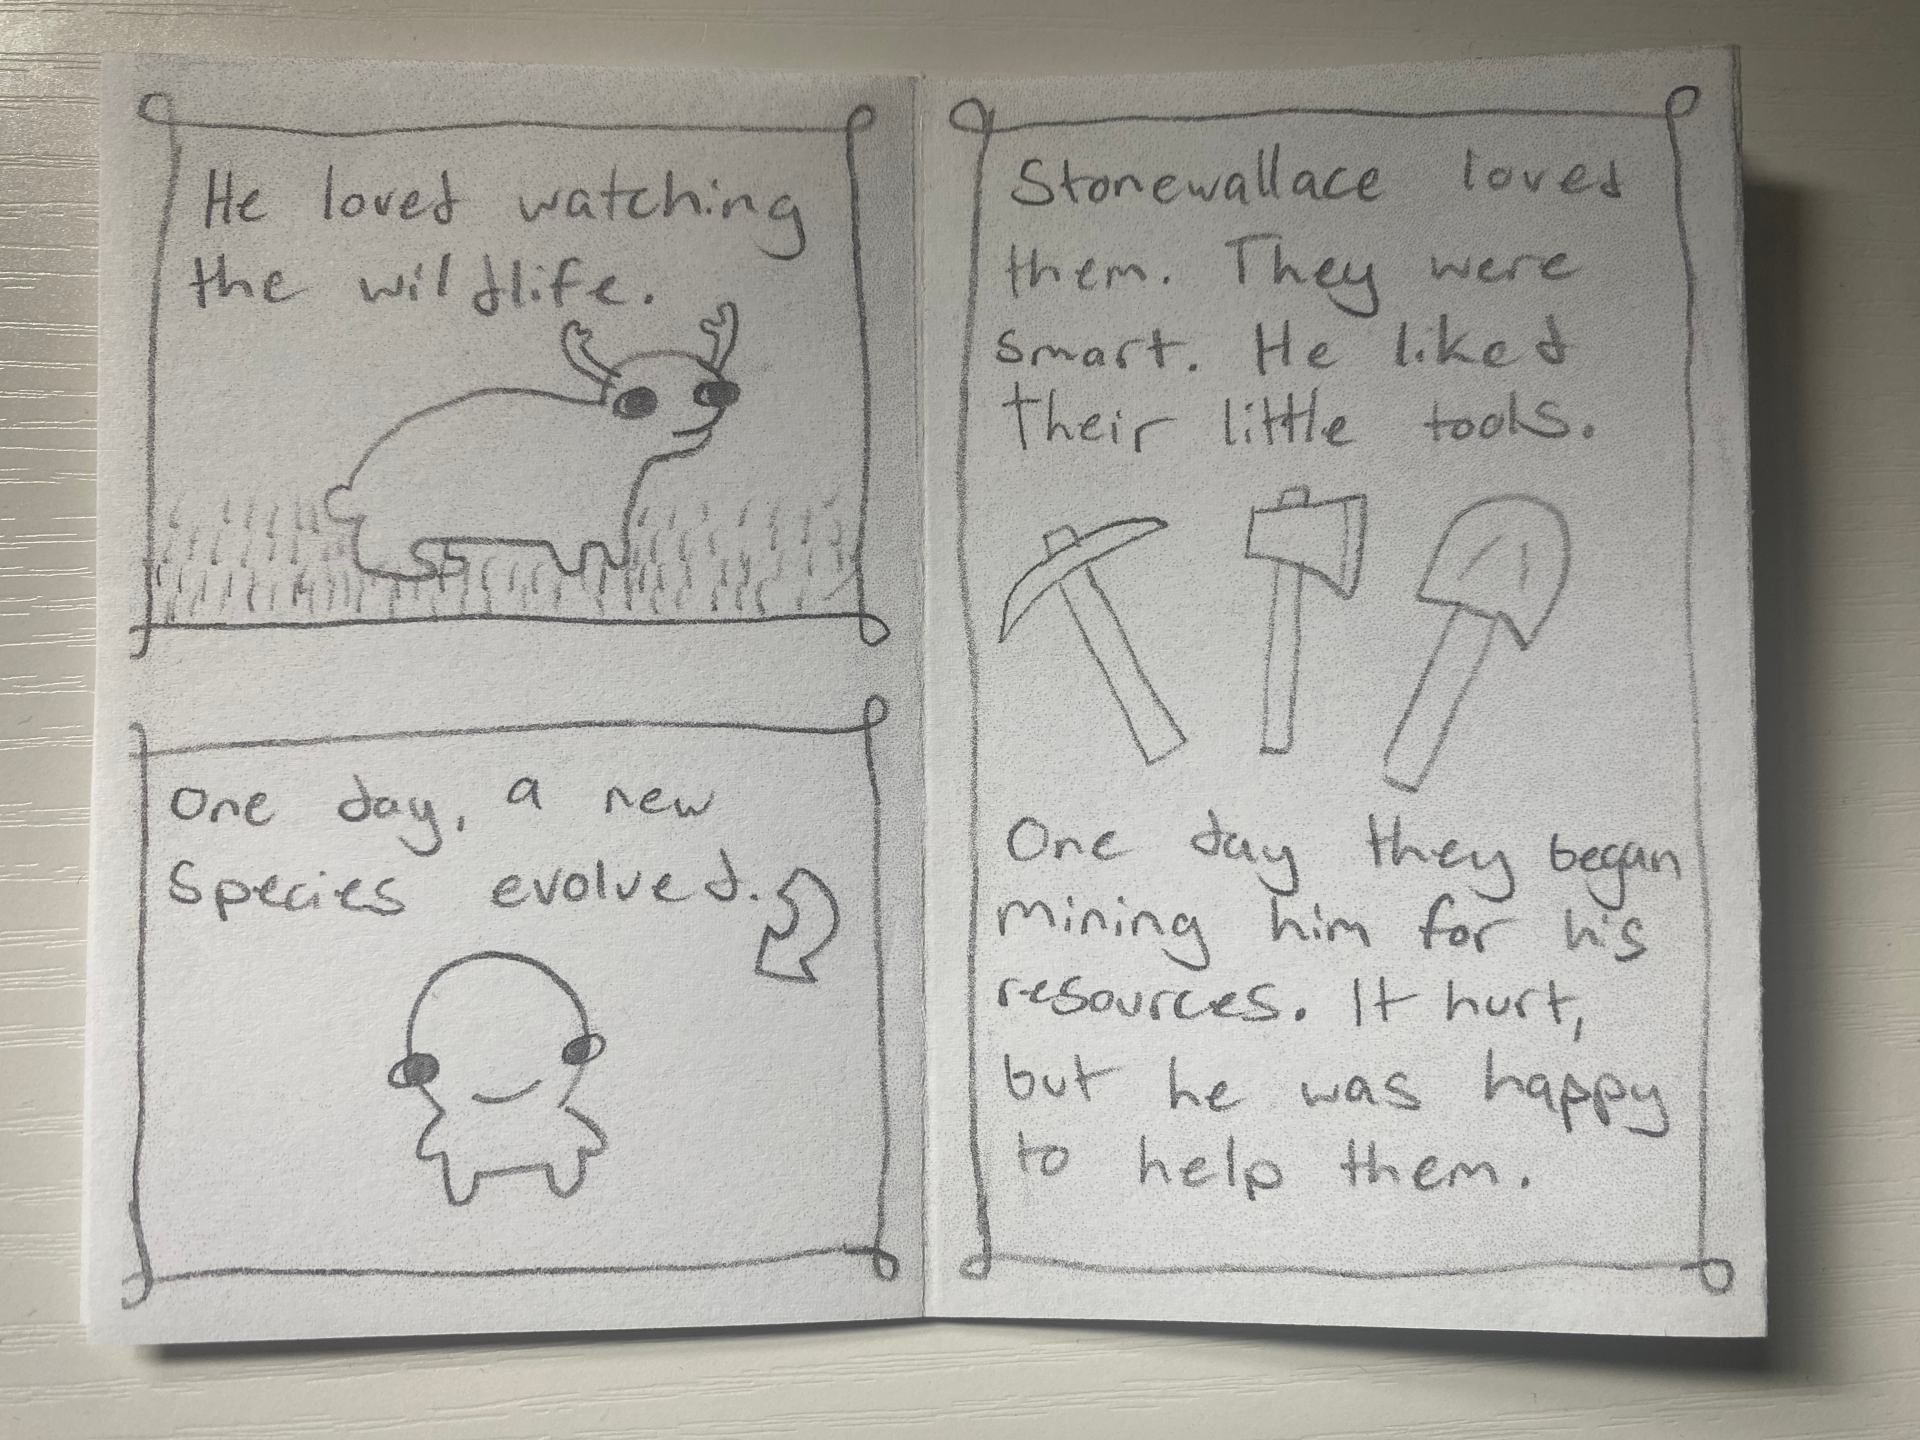 He loved watching
the wildlife.
One day, a new
species evolved.
Stonewallace loved
them. They were
smart. He liked
their little tools.
One day they began
mining him for his
resources. It hurt,
but he was happy
to help them.